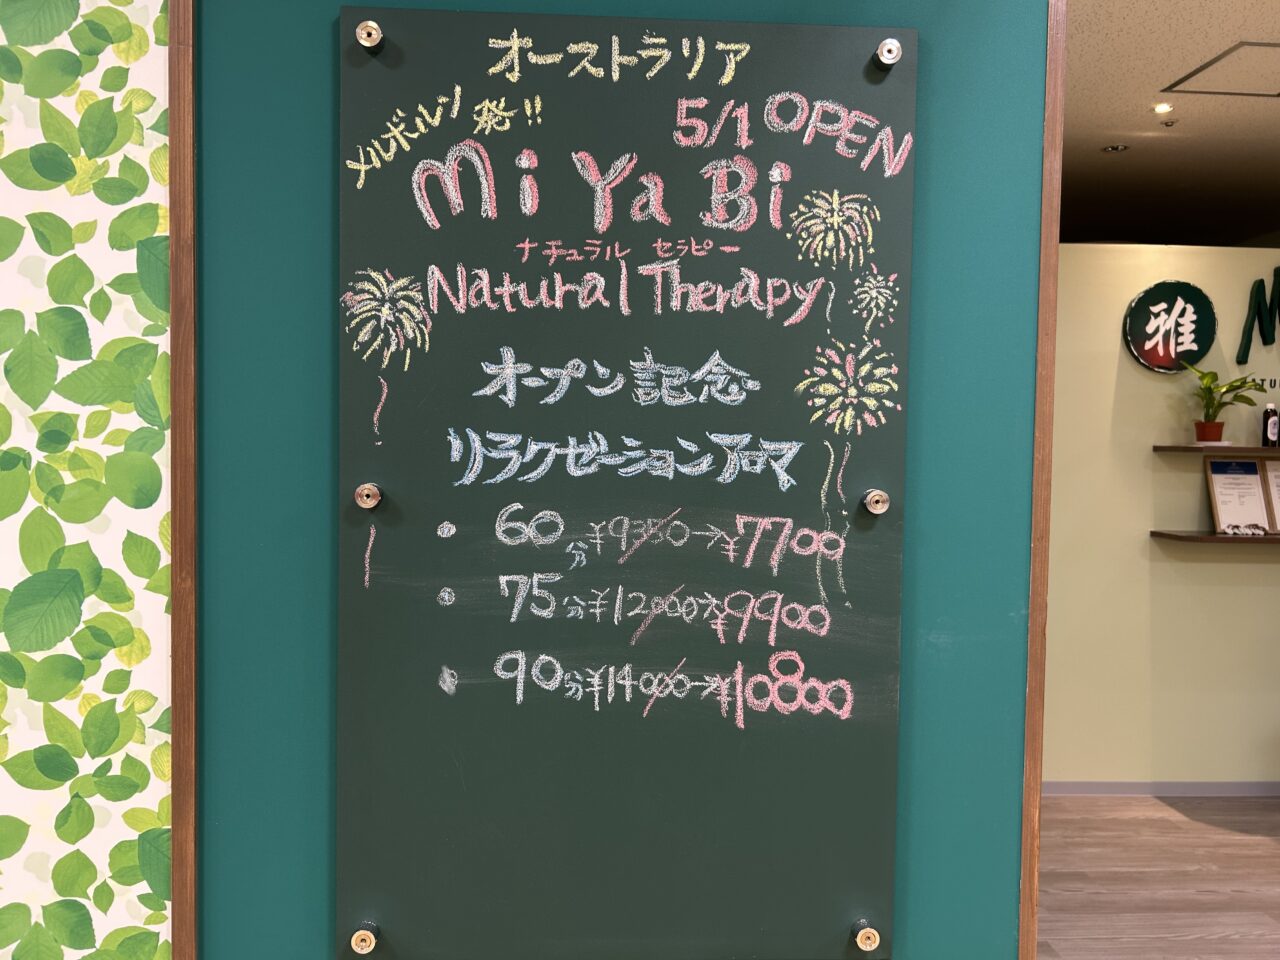 オーストラリア
メルボルン発!!
5/1 OPEN
MiYaBi
ナチュラル セラピー
Natural Therapy
オープン記念
リラクゼーションアロマ
・60分¥9350→¥7700
・75分¥12000→¥9900
・90分¥14000→¥10800
雅